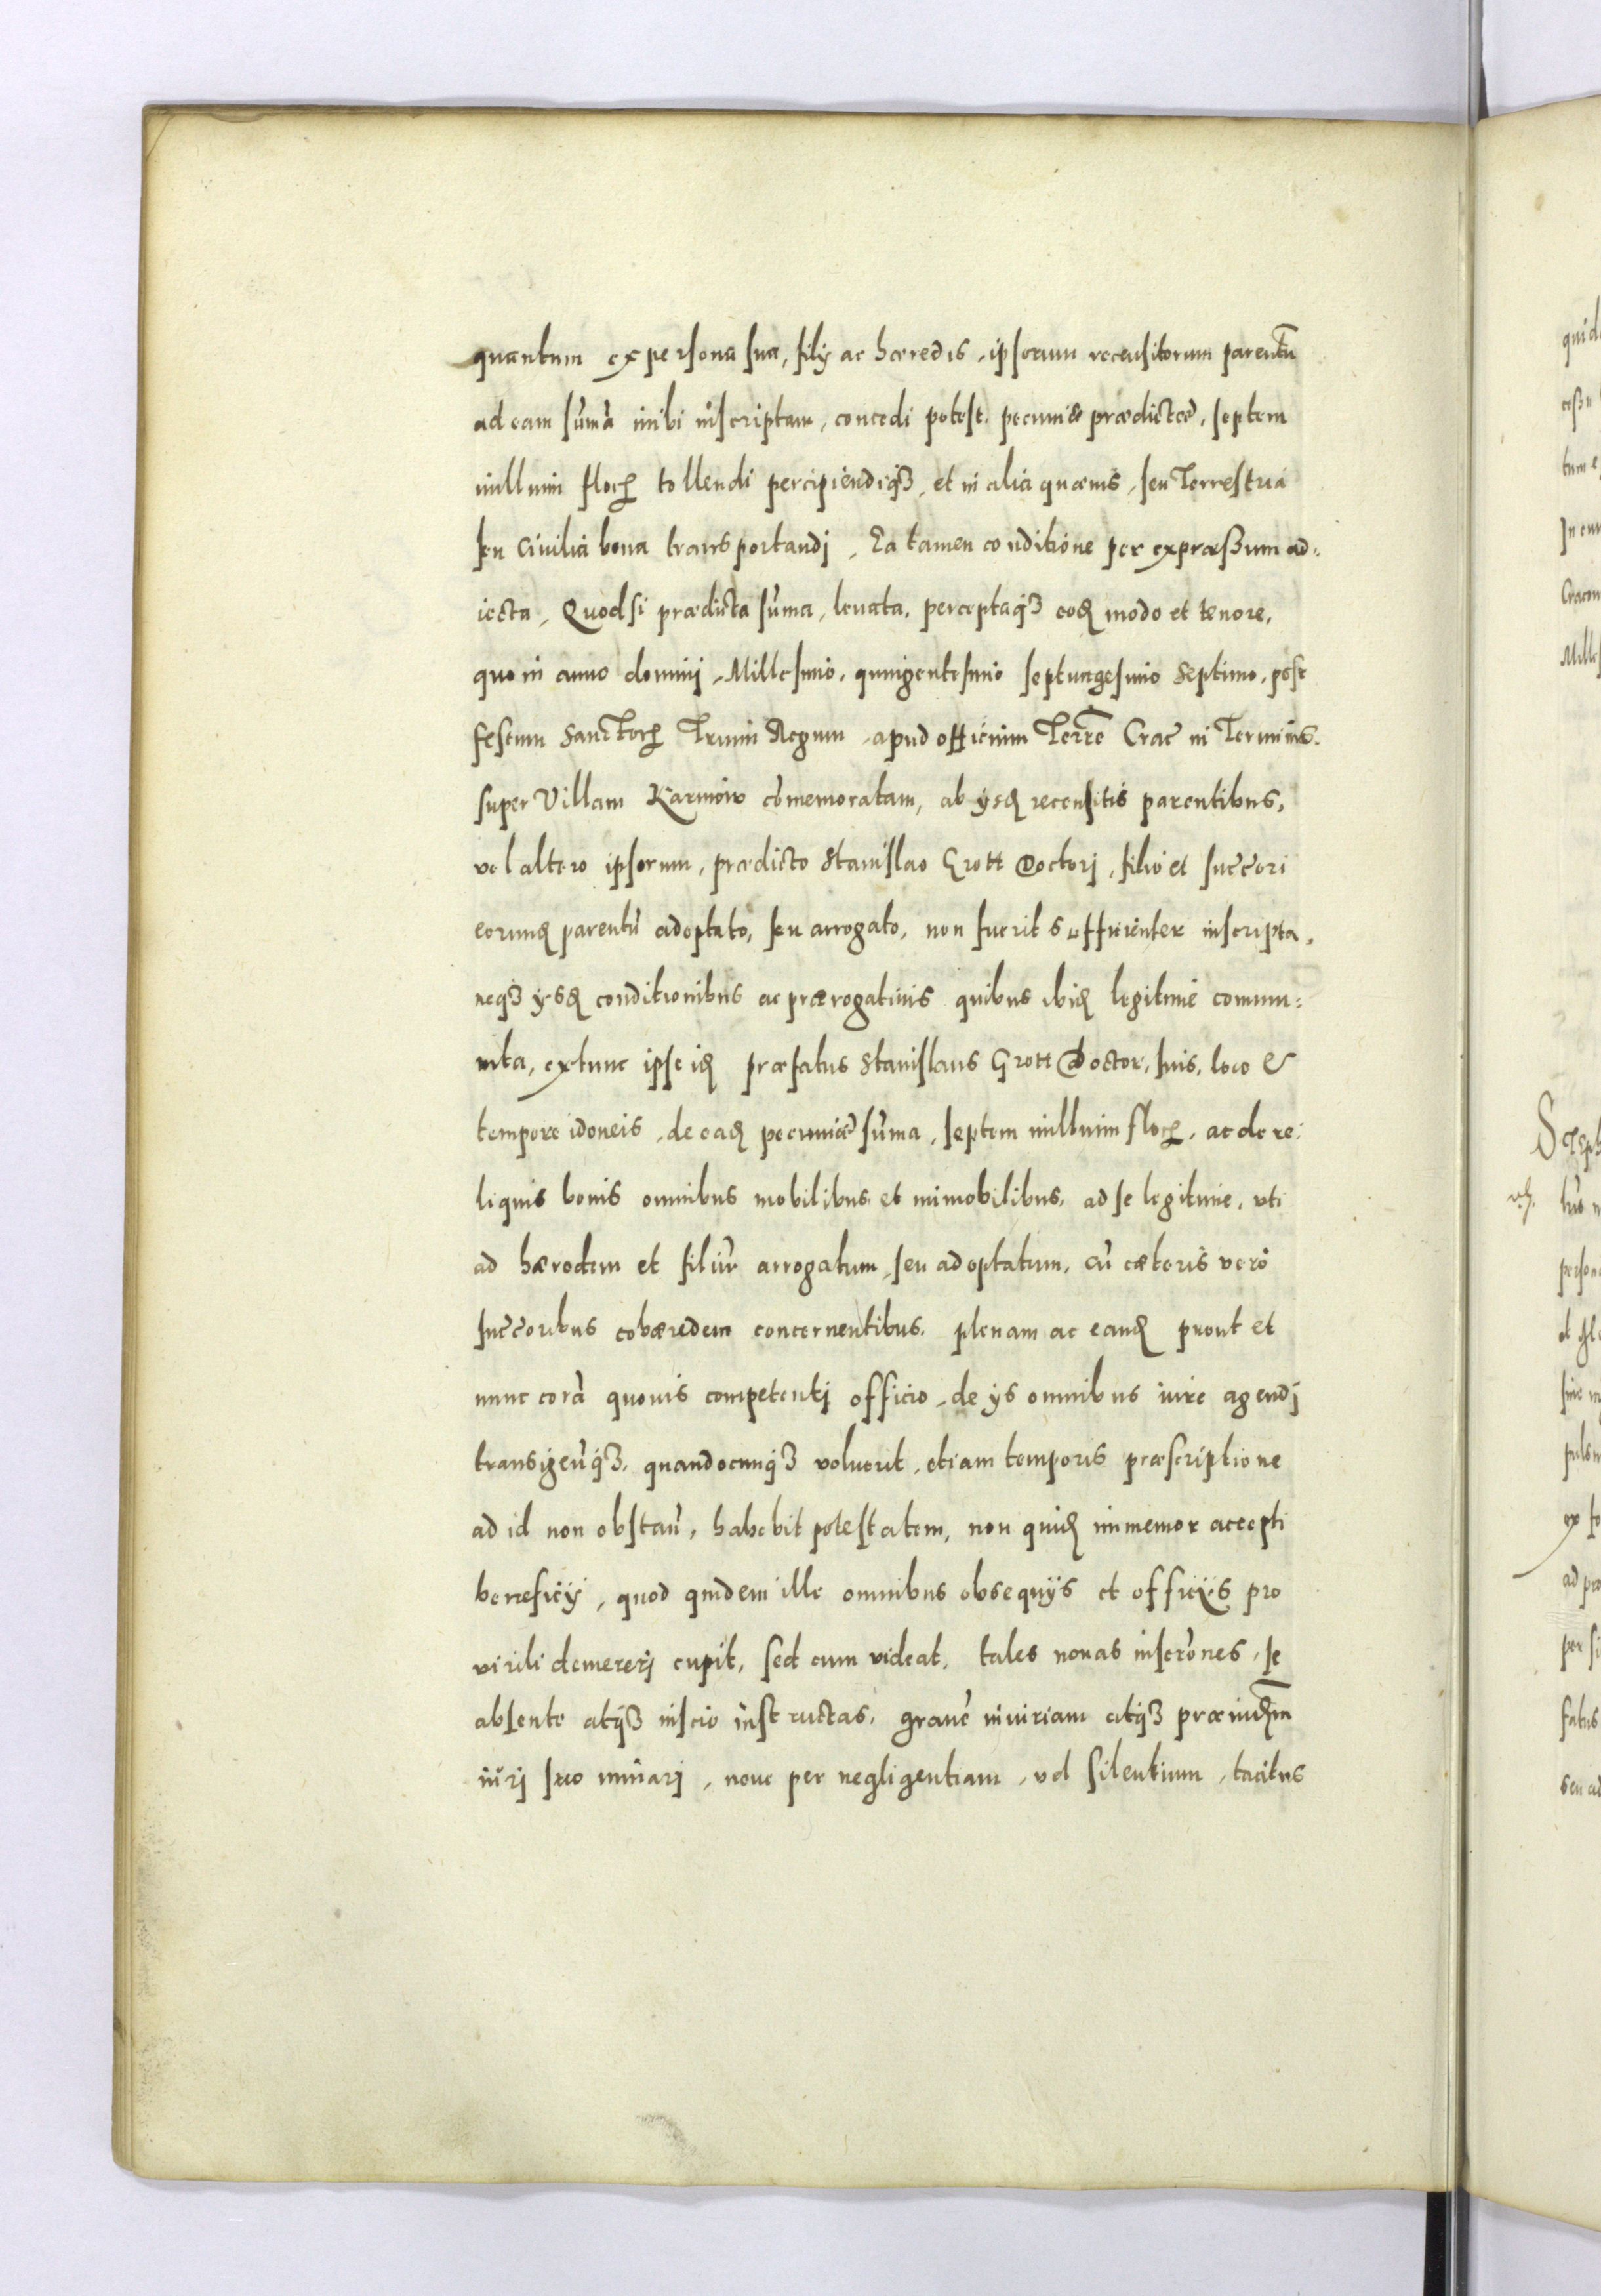 quantum ex persona sua, filÿ ac hæredis, ipsorum recensitorum parentũ
ad eam sũmã inibi inscriptam, concedi potest, pecuniæ prædictæ, septem
millium floꝝ tollendi percipiendiqꝫ, et in alia quævis, seu Terrestria
seu Civilia bona transportandj, Ea tamen conditione per expræßum ad:
iecta, Quod si prædicta sũma, levata, perceptaqꝫ eoꝺ modo et tenore,
quo in anno dominj, Millesimo, quingentesimo septuagesimo Septimo, post
festum Sanctoꝝ Trium Regum, apud officium Terre͂ Crac͂ in Terminis.
super Villam Karniow cõmemoratam, ab ÿsꝺ recensitis parentibus,
vel altero ipsorum, prædicto Stanislao Grott Doctorj, filio et succ͂ori
eorumꝺ parentũ adoptato, seu arrogato, non fuerit sufficienter inscripta,
neqꝫ ÿsꝺ conditionibus ac prærogativis quibus ibiꝺ legitime commu:
nita, extunc ipse iꝺ præfatus Stanislaus Grott Doctor, suis, loco &
tempore idoneis, de eaꝺ pecuniæ sũma, septem millium floꝝ, ac de re:
liquis bonis omnibus mobilibus et immobilibus, ad se legitime, uti
ad hæredem et filiũ arrogatum, seu adoptatum, cũ cæteris vero
succ͂oribus cohæredem concernentibus, plenam ac eanꝺ prout et
nunc corã quovis competentj officio, de ÿs omnibus iure agendj
transigen͂qꝫ, quandocunqꝫ voluerit, etiam temporis præscriptione
ad id non obstan͂, habebit potestatem, non quiꝺ immemor accepti
beneficÿ, quod quidem ille omnibus obsequÿs et officÿs pro
virili demererj cupit, sed cum videat, tales novas inscr͂ones, se
absente atqꝫ inscio instructas, grave͂ iniuriam atqꝫ præiuꝺm
iurj suo minarj, nove per negligentiam, vel silentium, tacitus